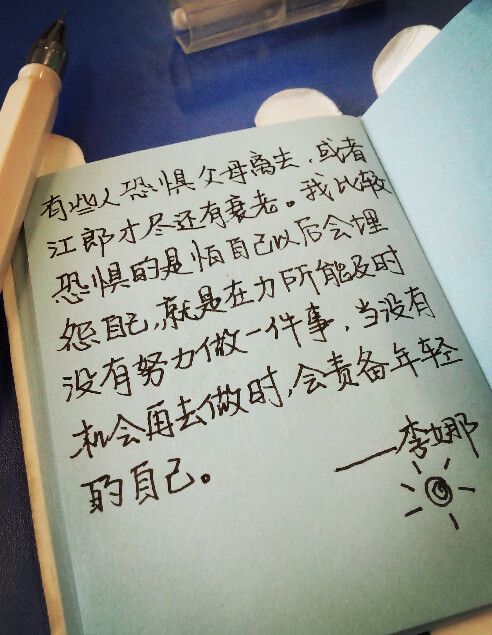 有些人恐惧父母离去，或者
江郎才尽还有衰老。我比较
恐惧的是怕自己以后会埋
怨自己，就是在力所能及时
没有努力做一件事，当没有
机会再去做时，会责备年轻
的自己。
——李娜